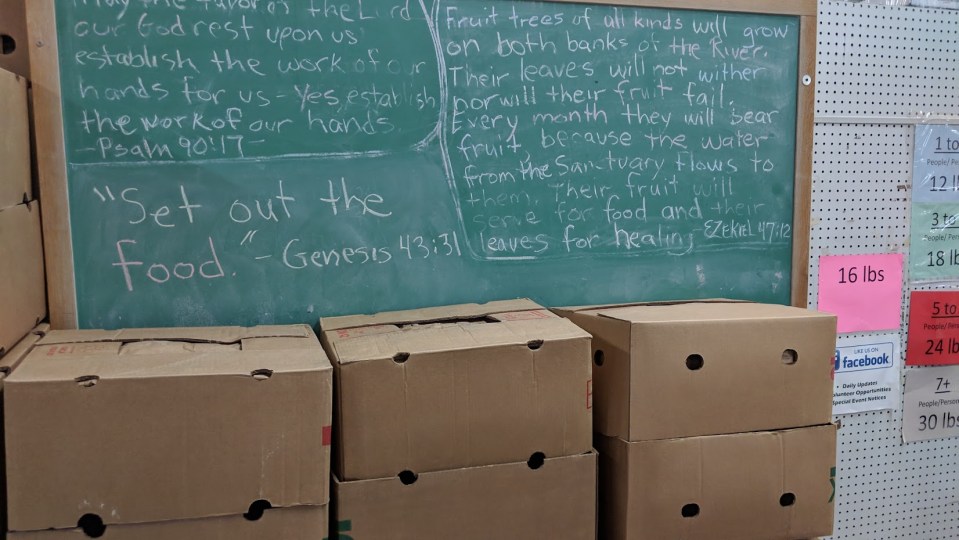 may the favor of the Lord
our God rest upon us
establish the work of our
hands for us - Yes, establish
the work of our hands.
-Psalm 90:17-
"Set out the
food." - Genesis 43:31
Fruit trees of all kinds will grow
on both banks of the River.
Their leaves will not wither
nor will their fruit fail.
Every month they will bear
fruit, because the water
from the Sanctuary flows to
them. Their fruit will
serve for food and their
leaves for healing -EZEKIEL 47:12
16 lbs
LIKE US ON
facebook
• Daily Updates
Volunteer Opportunities
Special Event Notices
1 to
People/Pe
12 l
3 to
People/Per
18 lb
5 to
People/Per
24 lb
7+
People/Person
30 lbs